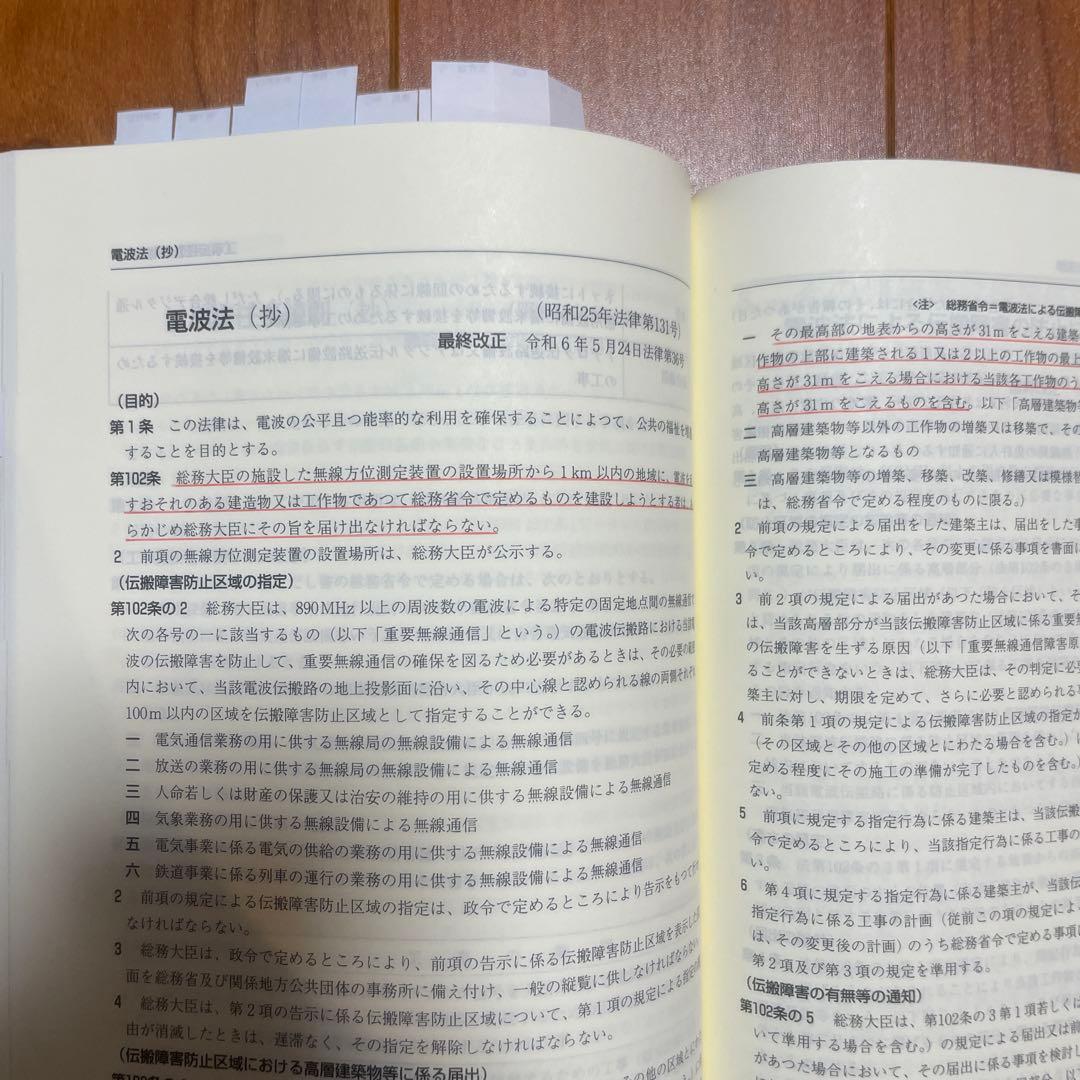 電波法（抄）
電波法（抄）
（昭和25年法律第131号）
最終改正　令和6年5月24日法律第36号
（目的）
第1条　この法律は、電波の公平且つ能率的な利用を確保することによつて、公共の福祉を
することを目的とする。
第102条　総務大臣の施設した無線方位測定装置の設置場所から1km以内の地域に、電波を
すおそれのある建造物又は工作物であつて総務省令で定めるものを建設しようとする者は、
らかじめ総務大臣にその旨を届け出なければならない。
2　前項の無線方位測定装置の設置場所は、総務大臣が公示する。
（伝搬障害防止区域の指定）
第102条の2　総務大臣は、890MHz以上の周波数の電波による特定の固定地点間の無線通信で
次の各号の一に該当するもの（以下「重要無線通信」という。）の電波伝搬路における当該
波の伝搬障害を防止して、重要無線通信の確保を図るため必要があるときは、その必要の範囲
内において、当該電波伝搬路の地上投影面に沿い、その中心線と認められる線の両側それぞれ
100m以内の区域を伝搬障害防止区域として指定することができる。
一　電気通信業務の用に供する無線局の無線設備による無線通信
二　放送の業務の用に供する無線局の無線設備による無線通信
三　人命若しくは財産の保護又は治安の維持の用に供する無線設備による無線通信
四　気象業務の用に供する無線設備による無線通信
五　電気事業に係る電気の供給の業務の用に供する無線設備による無線通信
六　鉄道事業に係る列車の運行の業務の用に供する無線設備による無線通信
2　前項の規定による伝搬障害防止区域の指定は、政令で定めるところにより告示をもつて行わ
なければならない。
3　総務大臣は、政令で定めるところにより、前項の告示に係る伝搬障害防止区域を表示した図
面を総務省及び関係地方公共団体の事務所に備え付け、一般の縦覧に供しなければならない。
4　総務大臣は、第2項の告示に係る伝搬障害防止区域について、第1項の規定による指定の理
由が消滅したときは、遅滞なく、その指定を解除しなければならない。
（伝搬障害防止区域における高層建築物等に係る届出）
〈注〉　総務省令＝電波法による伝搬障
一　その最高部の地表からの高さが31mをこえる建築
作物の上部に建築される1又は2以上の工作物の最上
高さが31mをこえる場合における当該各工作物のう
高さが31mをこえるものを含む。以下「高層建築物等
二　高層建築物等以外の工作物の増築又は移築で、その
高層建築物等となるもの
三　高層建築物等の増築、移築、改築、修繕又は模様替
は、総務省令で定める程度のものに限る。）
2　前項の規定による届出をした建築主は、届出をした事
令で定めるところにより、その変更に係る事項を書面に
い。
3　前2項の規定による届出があつた場合において、そ
は、当該高層部分が当該伝搬障害防止区域に係る重要無
の伝搬障害を生ずる原因（以下「重要無線通信障害原
ることができないときは、総務大臣は、その判定に必要
築主に対し、期限を定めて、さらに必要と認められる事
4　前条第1項の規定による伝搬障害防止区域の指定が
（その区域とその他の区域とにわたる場合を含む。）に
定める程度にその施工の準備が完了したものを含む。）
ない。
5　前項に規定する指定行為に係る建築主は、当該伝搬
令で定めるところにより、当該指定行為に係る工事の
い。
6　第4項に規定する指定行為に係る建築主が、当該伝
指定行為に係る工事の計画（従前この項の規定によ
は、その変更後の計画）のうち総務省令で定める事項に
第2項及び第3項の規定を準用する。
（伝搬障害の有無等の通知）
第102条の5　総務大臣は、第102条の3第1項若しくは
いて準用する場合を含む。）の規定による届出又は前
があつた場合において、その届出に係る事項を検討し